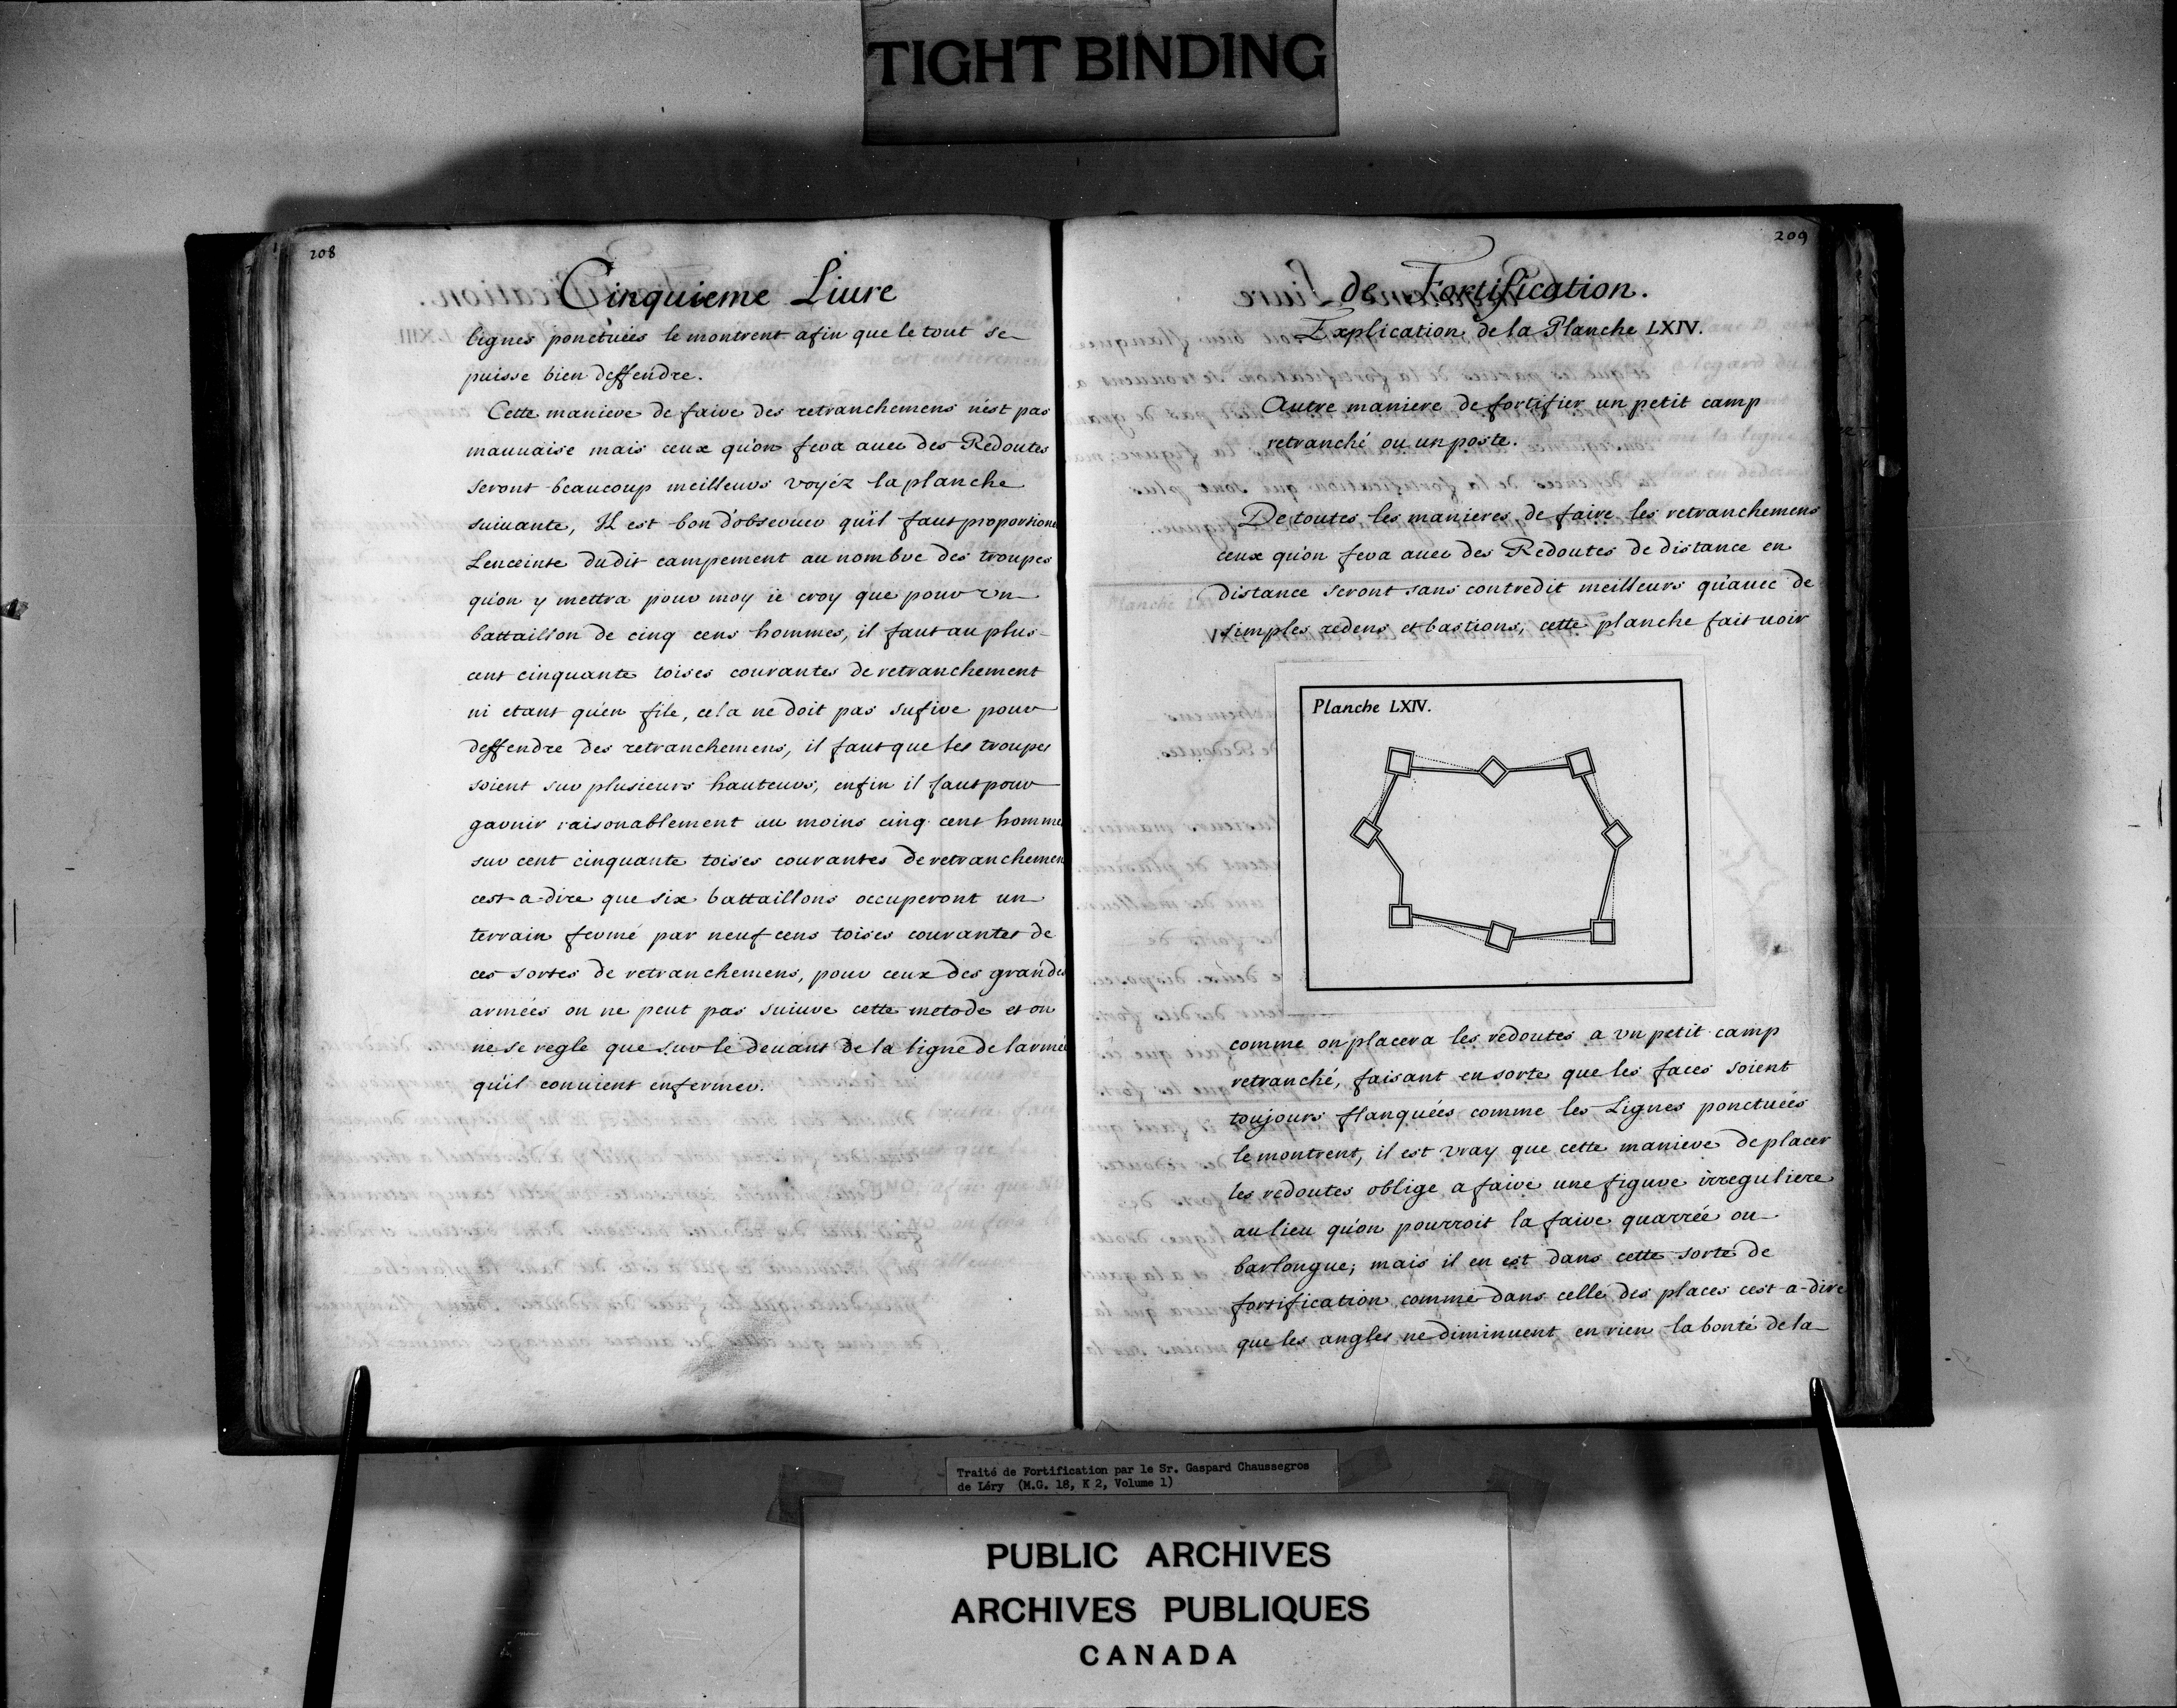 TIGHT BINDING
208
Cinquieme Liure
lignes ponctuées le montrent afin que le tout se
puisse bien deffendre.
Cette maniere de faire des retranchemens n'est pas
mauuaise mais ceux qu'on fera auec des Redoutes
seront beaucoup meilleurs voyéz la planche
suiuante, Il est bon d'obseruer qu'il faut proportione
Lenceinte dudit campement au nombre des troupes
qu'on y mettra pour moy ie croy que pour vn
battaillon de cinq cens hommes, il faut au plus
cent cinquante toises courantes de retranchement
ni etant qu'en file, cela ne doit pas sufire pour
deffendre des retranchemens, il faut que les troupes
soient sur plusieurs hauteurs, enfin il faut pour
garnir raisonablement au moins cinq cent homme
sur cent cinquante toises courantes de retranchemen
cest-a-dire que six battaillons occuperont un
terrain fermé par neuf cens toises courantes de
ces sortes de retranchemens, pour ceux des grandes
armées on ne peut pas suiure cette metode et on
ne se regle que sur le deuant de la ligne de larmée
qu'il conuient enfermer.
209
de Fortification.
Explication de la Planche LXIV.
Autre maniere de fortifier un petit camp
retranché ou un poste.
De toutes les manieres, de faire les retranchemens
ceux qu'on fera auec des Redoutes de distance en
distance seront sans contredit meilleurs qu'auec de
simples redens et bastions, cette planche fait uoir
Planche LXIV.
comme on placera les redoutes a vn petit camp
retranché, faisant en sorte que les faces soient
toujours flanquées comme les Lignes ponctuées
le montrent, il est vray que cette maniere de placer
les redoutes oblige a faire une figure irreguliere
au lieu qu'on pourroit la faire quarrée ou
barlongue; mais il en est dans cette sorte de
fortification comme dans celle des places cest-a-dire
que les angles ne diminuent en rien la bonté de la
Traité de Fortification par le Sr. Gaspard Chaussegros
de Léry (M.G. 18, K 2, Volume 1)
PUBLIC ARCHIVES
ARCHIVES PUBLIQUES
CANADA